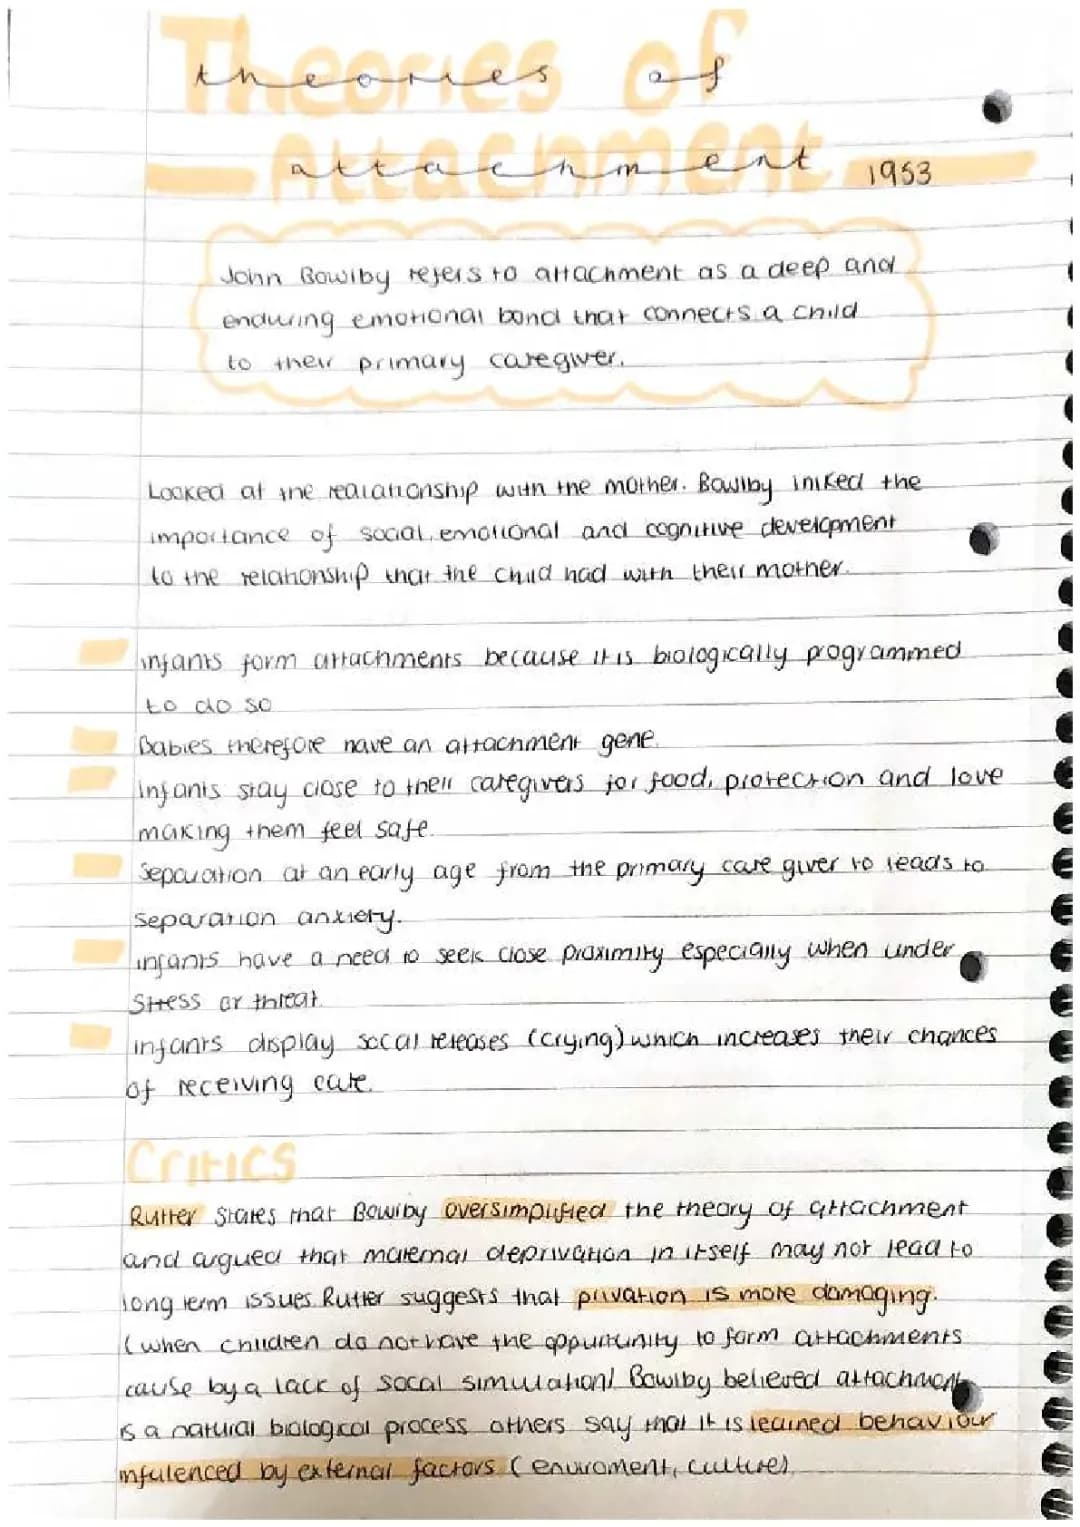 Theories of
theories of
Attachment
attachment 1953
John Bowlby refers to attachment as a deep and
enduring emotional bond that connects a child
to their primary caregiver.
Looked at the realationship with the mother. Bowlby inked the
importance of social, emotional and cognitive development
to the relationship that the child had with their mother.
infants form attachments because it is biologically programmed
to do so
Babies therefore have an attachment gene.
Infants stay close to their caregivers for food, protection and love
making them feel safe.
Separation at an early age from the primary care giver to leads to
separation anxiety.
infants have a need to seek close proximity especially when under
stress or threat.
infants display socal releases (crying) which increases their chances
of receiving care.
Critics
Rutter states that Bowlby oversimplified the theory of attachment
and argued that maternal deprivation in itself may not lead to
long term issues. Rutter suggests that privation is more damaging.
(when children do not have the oppurtunity to form attachments
cause by a lack of socal simulation) Bowlby believed attachment
is a natural biological process others say that it is learned behaviour
infulenced by external factors (enviroment, culture).